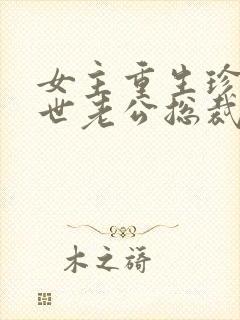 女主重生珍
世老公总裁
木之蒻